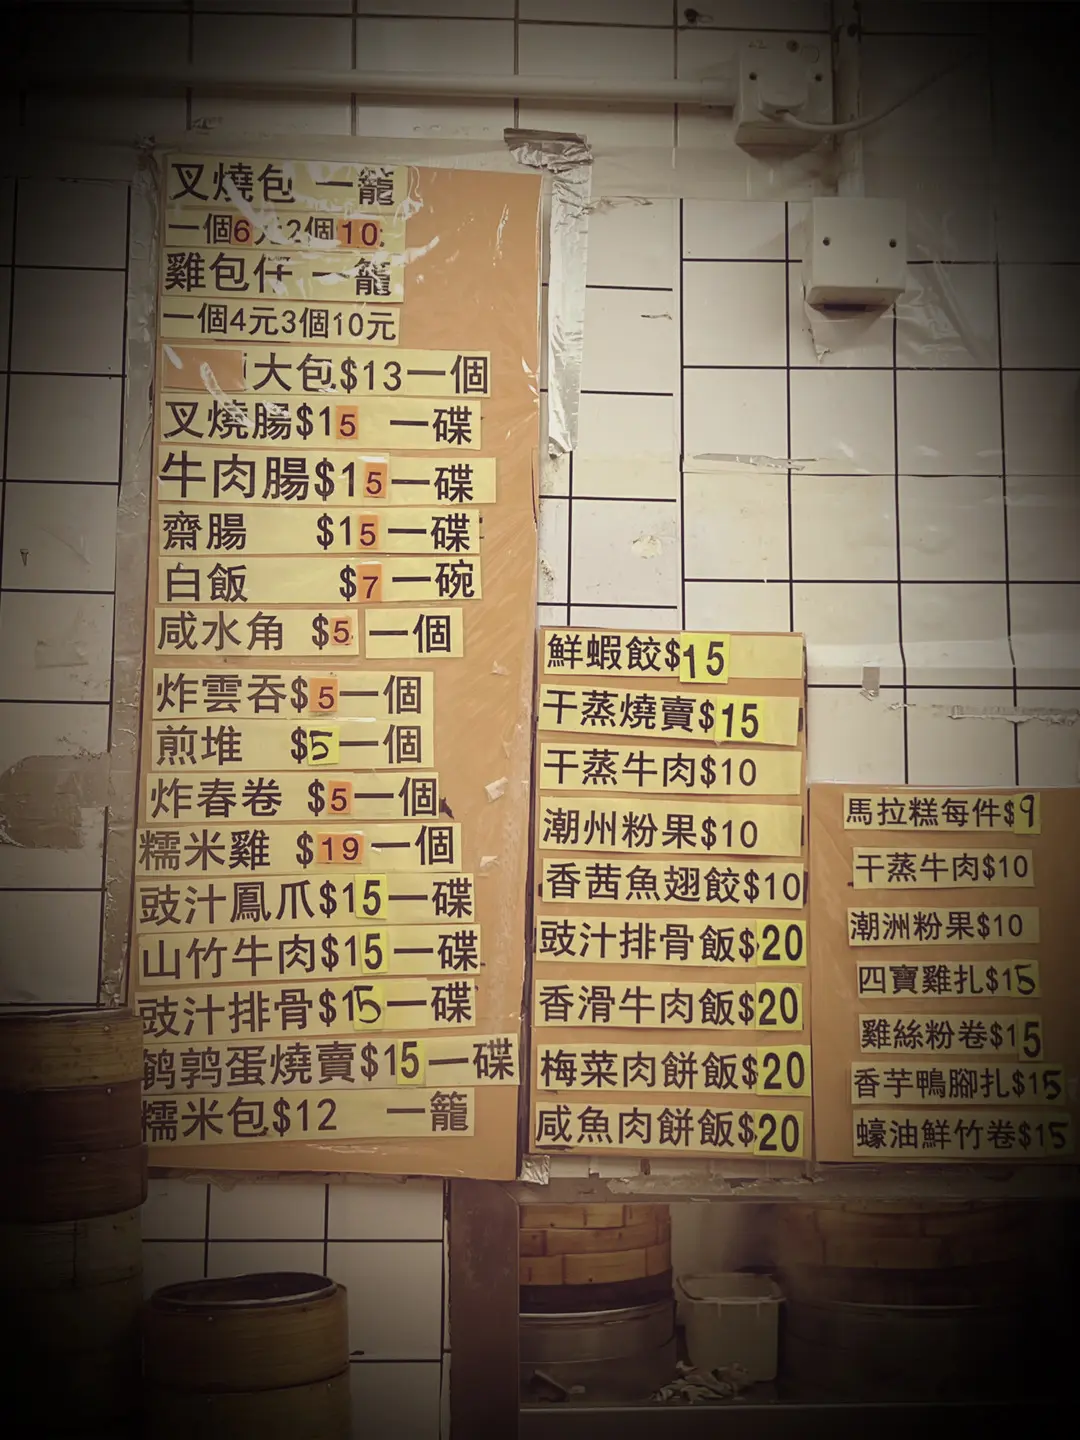 叉燒包 一籠
一個6元2個10元
雞包仔 一籠
一個4元3個10元
大包$13一個
叉燒腸$15 一碟
牛肉腸$15一碟
齋腸 $15一碟
白飯 $7一碗
咸水角 $5一個
炸雲吞$5一個
煎堆 $5一個
炸春卷 $5一個
糯米雞 $19一個
豉汁鳳爪$15一碟
山竹牛肉$15一碟
豉汁排骨$15一碟
鹌鹑蛋燒賣$15一碟
糯米包$12 一籠
鮮蝦餃$15
干蒸燒賣$15
干蒸牛肉$10
潮州粉果$10
香茜魚翅餃$10
豉汁排骨飯$20
香滑牛肉飯$20
梅菜肉餅飯$20
咸魚肉餅飯$20
馬拉糕每件$9
干蒸牛肉$10
潮洲粉果$10
四寶雞扎$15
雞絲粉卷$15
香芋鴨腳扎$15
蠔油鮮竹卷$15